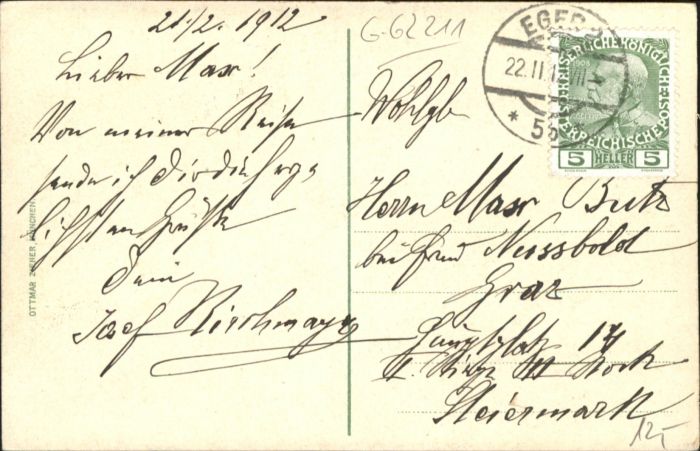 21./2. 1912
Lieber Max!
Von meiner Reise
sende ich Dir die herz-
lichsten Grüße
Dein
Josef Kirchmayr
OTTMAR ZIEHER, MÜNCHEN
G-62211
Wohlgb
Herrn Max Butz
bei Frau Nussbold
Graz
Hauptplatz 17
II. Stiege III Stock
Steiermark
12,-
EGER
22.II.12
* 5
KAISERLICHE KÖNIGLICHE ÖSTERREICHISCHE POST
1908
5 HELLER 5